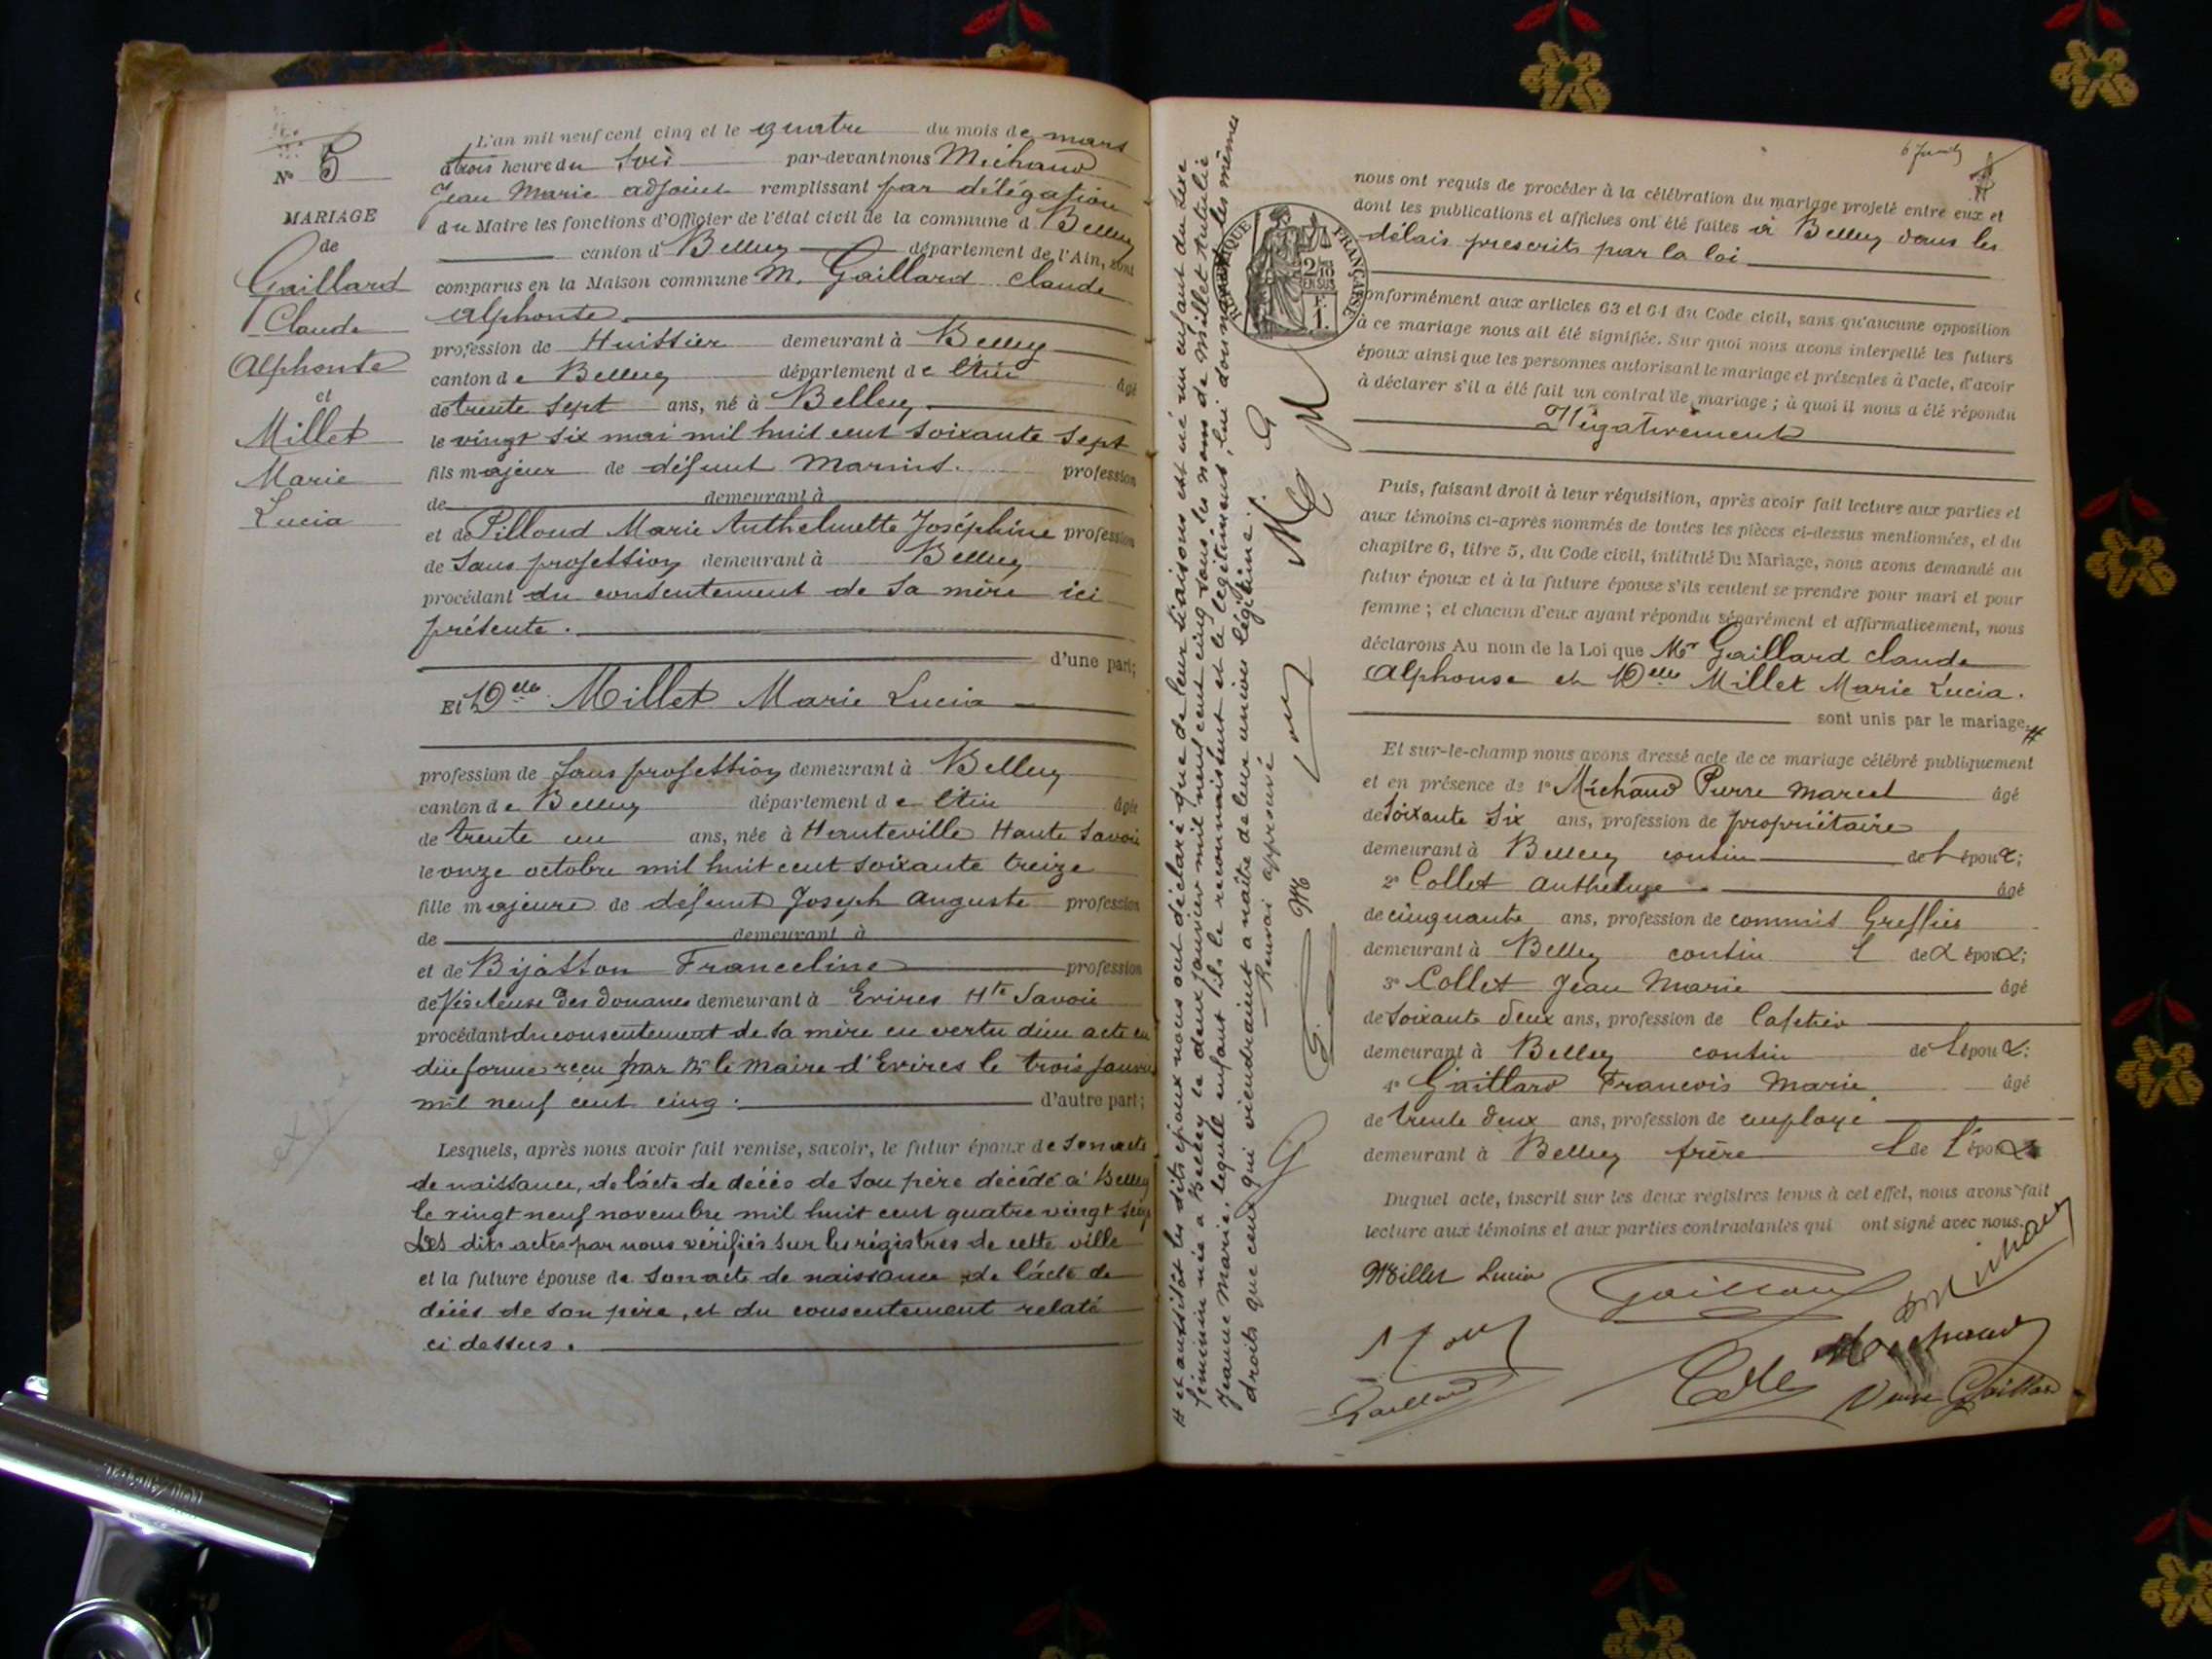 N° 5
MARIAGE
de
Gaillard
Claude
Alphonse
et
Millet
Marie
Lucia
L'an mil neuf cent cinq et le quatre du mois de mars
à trois heure du soir par-devant nous Michaud
Jean Marie adjoint remplissant par délégation
du Maire les fonctions d'Officier de l'état civil de la commune d Belley
canton d Belley département de l'Ain, sont
comparus en la Maison commune M. Gaillard Claude
Alphonse.
profession de Huissier demeurant à Belley
canton de Belley département de l'Ain âgé
de trente sept ans, né à Belley
le vingt six mai mil huit cent soixante sept
fils majeur de défunt Marius. profession
de demeurant à
et de Pilloud Marie Anthelmette Joséphine profession
de Sans profession demeurant à Belley
procédant du consentement de sa mère ici
présente.
d'une part;
Et Delle Millet Marie Lucia
profession de Sans profession demeurant à Belley
canton de Belley département de l'Ain âgée
de trente un ans, née à Hauteville Haute Savoie
le onze octobre mil huit cent soixante treize
fille majeure de défunt Joseph Auguste profession
de demeurant à
et de Bijasson Franceline profession
de Visiteuse des douanes demeurant à Evires Hte Savoie
procédant du consentement de sa mère en vertu d'un acte en
due forme reçu par Mr le Maire d'Evires le trois janvier
mil neuf cent cinq. d'autre part;
Lesquels, après nous avoir fait remise, savoir, le futur époux de son acte
de naissance, de l'acte de décès de son père décédé à Belley
le vingt neuf novembre mil huit cent quatre vingt
Les dits actes par nous vérifiés sur les régistres de cette ville
et la future épouse de son acte de naissance, de l'acte de
décès de son père, et du consentement relaté
ci dessus.
# et aussitôt les dits époux nous ont déclaré que de leur liaison est né un enfant du sexe
féminin née à Belley le deux janvier mil neuf cent cinq sous les noms de Millet
Jeanne Marie, lequel enfant ils le reconnaissent et le légitiment, lui donnant les mêmes
droits que ceux qui viendraient a naître de leur union légitime.
Renvoi approuvé
RÉPUBLIQUE FRANÇAISE
2/10 EN SUS
F. 1.
nous ont requis de procéder à la célébration du mariage projeté entre eux et
dont les publications et affiches ont été faites à Belley dans les
délais prescrits par la loi
conformément aux articles 63 et 64 du Code civil, sans qu'aucune opposition
à ce mariage nous ait été signifiée. Sur quoi nous avons interpellé les futurs
époux ainsi que les personnes autorisant le mariage et présentes à l'acte, d'avoir
à déclarer s'il a été fait un contrat de mariage; à quoi il nous a été répondu
Négativement
Puis, faisant droit à leur réquisition, après avoir fait lecture aux parties et
aux témoins ci-après nommés de toutes les pièces ci-dessus mentionnées, et du
chapitre 6, titre 5, du Code civil, intitulé Du Mariage, nous avons demandé au
futur époux et à la future épouse s'ils veulent se prendre pour mari et pour
femme; et chacun d'eux ayant répondu séparément et affirmativement, nous
déclarons Au nom de la Loi que Mr Gaillard Claude
Alphonse et Delle Millet Marie Lucia.
sont unis par le mariage. #
Et sur-le-champ nous avons dressé acte de ce mariage célébré publiquement
et en présence de 1° Michaud Pierre Marcel âgé
de soixante six ans, profession de propriétaire
demeurant à Belley cousin de l'époux;
2° Collet Anthelme. âgé
de cinquante ans, profession de commis Greffier
demeurant à Belley cousin de l'époux;
3° Collet Jean Marie âgé
de soixante deux ans, profession de Cafetier
demeurant à Belley cousin de l'époux;
4° Gaillard François Marie âgé
de trente deux ans, profession de employé
demeurant à Belley frère de l'époux
Duquel acte, inscrit sur les deux régistres tenus à cet effet, nous avons fait
lecture aux témoins et aux parties contractantes qui ont signé avec nous.
Millet Lucia
Gaillard
Michaud
Gaillard
Veuve Gaillard